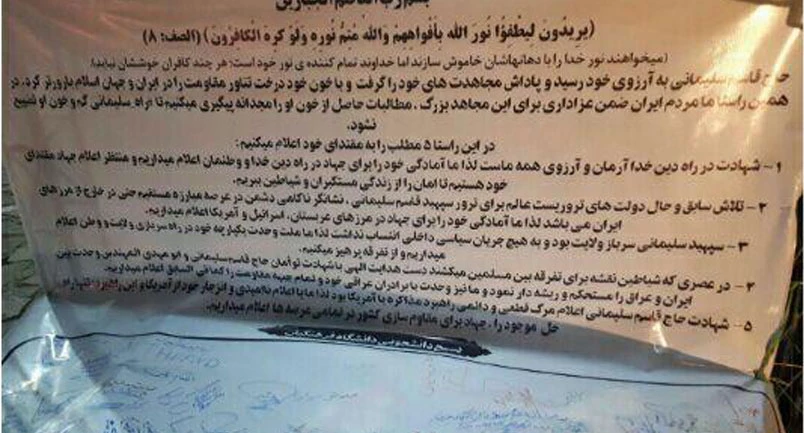 بسم رب القاصم الجبارین
(یریدُونَ لِیطْفِؤُا نُورَ اللَّهِ بِأَفْوَاهِهِمْ وَاللَّهُ مُتِمُّ نُورِهِ وَلَوْ کَرِهَ الْکَافِرُونَ) (الصف: ۸)
(میخواهند نور خدا را با دهانهاشان خاموش سازند اما خداوند تمام کننده ی نور خود است؛ هر چند کافران خوششان نیاید)
حاج قاسم سلیمانی به آرزوی خود رسید و پاداش مجاهدت های خود را گرفت و با خون خود درخت تناور مقاومت را در ایران و جهان اسلام بارورتر کرد. در
همین راستا ما مردم ایران ضمن عزاداری برای این مجاهد بزرگ ، مطالبات حاصل از خون او را مجدانه پیگیری میکنیم تا راه سلیمانی گم و خون او تضییع
نشود.
در این راستا ۵ مطلب را به مقتدای خود اعلام میکنیم:
۱- شهادت در راه دین خدا آرمان و آرزوی همه ماست لذا ما آمادگی خود را برای جهاد در راه دین خدا و وطنمان اعلام میداریم و منتظر اعلام جهاد مقتدای
خود هستیم تا امان را از زندگی مستکبران و شیاطین ببریم.
۲- تلاش سابق و حال دولت های تروریست عالم برای ترور سپهبد قاسم سلیمانی ، نشانگر ناکامی دشمن در عرصه مبارزه مستقیم حتی در خارج از مرزهای
ایران می باشد لذا ما آمادگی خود را برای جهاد در مرزهای عربستان، اسرائیل و آمریکا اعلام میداریم.
۳- سپهبد سلیمانی سرباز ولایت بود و به هیچ جریان سیاسی داخلی انتساب نداشت لذا ما ملت وحدت یکپارچه خود در راه سربازی ولایت و وطن اعلام
میداریم و از تفرقه پرهیز میکنیم.
۴- در عصری که شیاطین نقشه برای تفرقه بین مسلمین میکشند دست هدایت الهی با شهادت توأمان حاج قاسم سلیمانی و ابو مهدی المهندس وحدت بین
ایران و عراق را مستحکم و ریشه دار نمود و ما نیز وحدت با برادران عراقی خود و تمام جبهه مقاومت را کما فی السابق اعلام میداریم.
۵- شهادت حاج قاسم سلیمانی اعلام مرگ قطعی و دائمی راهبرد مذاکره با آمریکا بود لذا ما با اعلام ناامیدی و انزجار خود از آمریکا و این راهبرد تنها راه
حل موجود را ، جهاد برای مقاوم سازی کشور در تمامی عرصه ها اعلام میداریم.
بسیج دانشجویی دانشگاه فرهنگیان